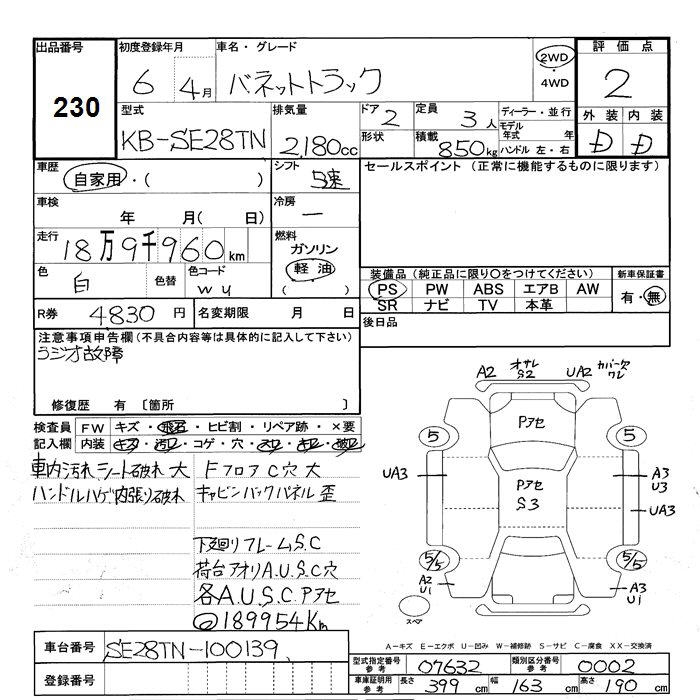 出品番号 初度登録年月 車名・グレード 評価点
230 6 4月 バネットトラック 2WD・4WD 2
外装 内装
D D
型式 排気量 ドア 定員 ディーラー・並行
KB-SE28TN 2,180cc 2 3人 モデル年式 年
形状 積載 850kg ハンドル 左・右
車歴 シフト セールスポイント(正常に機能するものに限ります)
自家用・( ) 5速
車検 冷房
年 月( 日) ー
走行 燃料
18万9千960km ガソリン
色 色替 色コード 軽油
白 wu ( )
装備品(純正品に限り○をつけてください) 新車保証書
PS PW ABS エアB AW 有・無
SR ナビ TV 本革
R券 4830円 名変期限 月 日 後日品
注意事項申告欄(不具合内容等は具体的に記入して下さい)
ラジオ故障
修復歴 有〔箇所 〕
検査員 FW キズ・飛石・ヒビ割・リペア跡・×要
記入欄 内装 キズ・汚れ・コゲ・穴・スレ・キレ・破れ
車内汚れ シート破れ 大 Fフロア C穴 大
ハンドルハゲ 内張り破れ キャビンバックパネル 歪
下廻りフレームS.C
荷台アオリA.U.S.C穴
各A.U.S.C Pアセ
189954Km
A2 オサレ S2 UA2 カバー欠 ワレ
Pアセ
5 5
UA3 Pアセ S3 A3 U3
UA3
5/5 5/5
A2 U1 A3 U1
スペア
A-キズ E-エクボ U-凹み W-補修跡 S-サビ C-腐食 XX-交換済
車台番号 SE28TN-100139
登録番号
型式指定番号 参考 07632 類別区分番号 参考 0002
車庫証明用 参考 長さ 399cm 幅 163cm 高さ 190cm